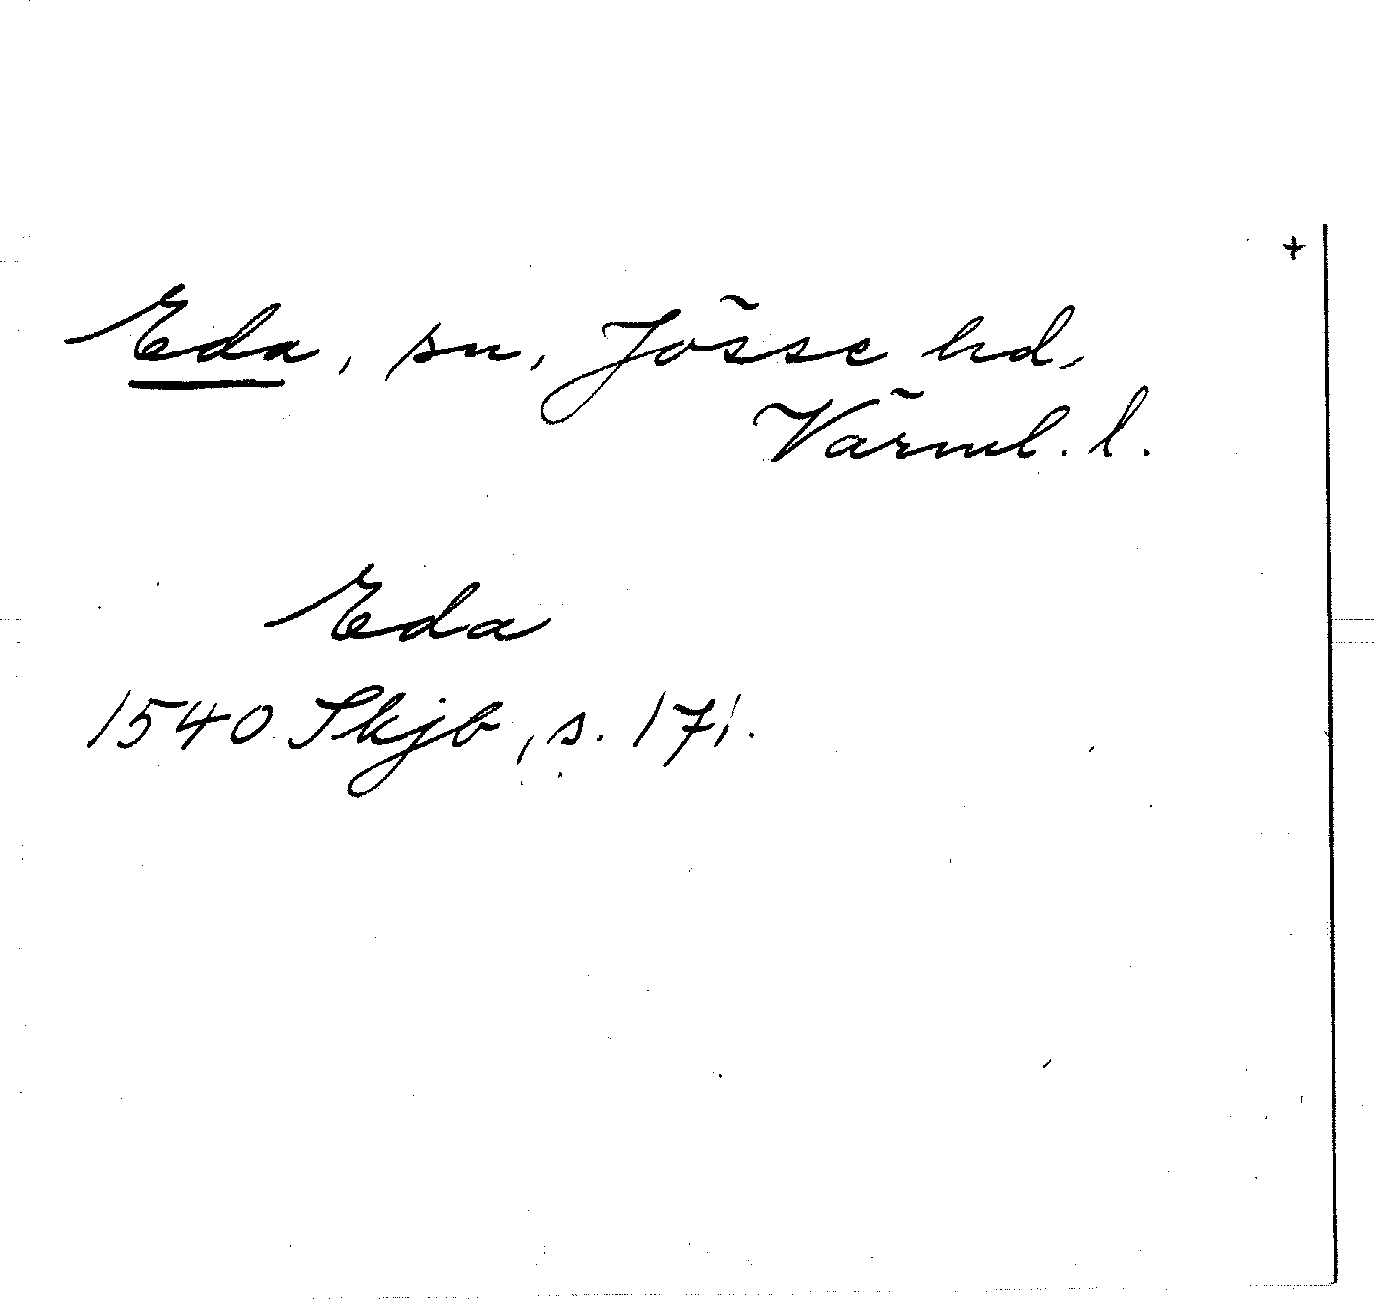 +
Eda, sn, Jösse hd,
Värml. l.
Eda
1540 Skjb, s. 171.